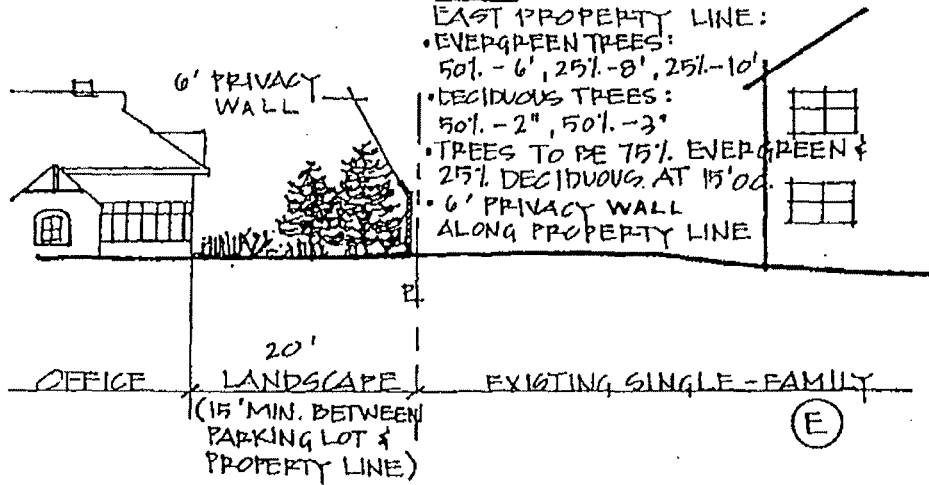 EAST PROPERTY LINE:
• EVERGREEN TREES:
50% - 6', 25% - 8', 25% - 10'
• DECIDUOUS TREES:
50% - 2", 50% - 3"
• TREES TO BE 75% EVERGREEN &
25% DECIDUOUS AT 15' OC.
• 6' PRIVACY WALL
ALONG PROPERTY LINE
6' PRIVACY
WALL
PL
20'
OFFICE
LANDSCAPE
EXISTING SINGLE-FAMILY
(15' MIN. BETWEEN
PARKING LOT &
PROPERTY LINE)
E